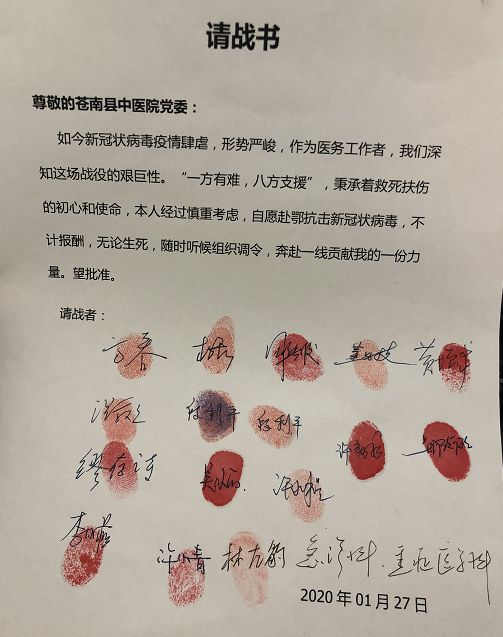 请战书
尊敬的苍南县中医院党委：
如今新冠状病毒疫情肆虐，形势严峻，作为医务工作者，我们深
知这场战役的艰巨性。“一方有难，八方支援”，秉承着救死扶伤
的初心和使命，本人经过慎重考虑，自愿赴鄂抗击新冠状病毒，不
计报酬，无论生死，随时听候组织调令，奔赴一线贡献我的一份力
量。望批准。
请战者：
李
林 急诊科.重症医学科
2020年01月27日